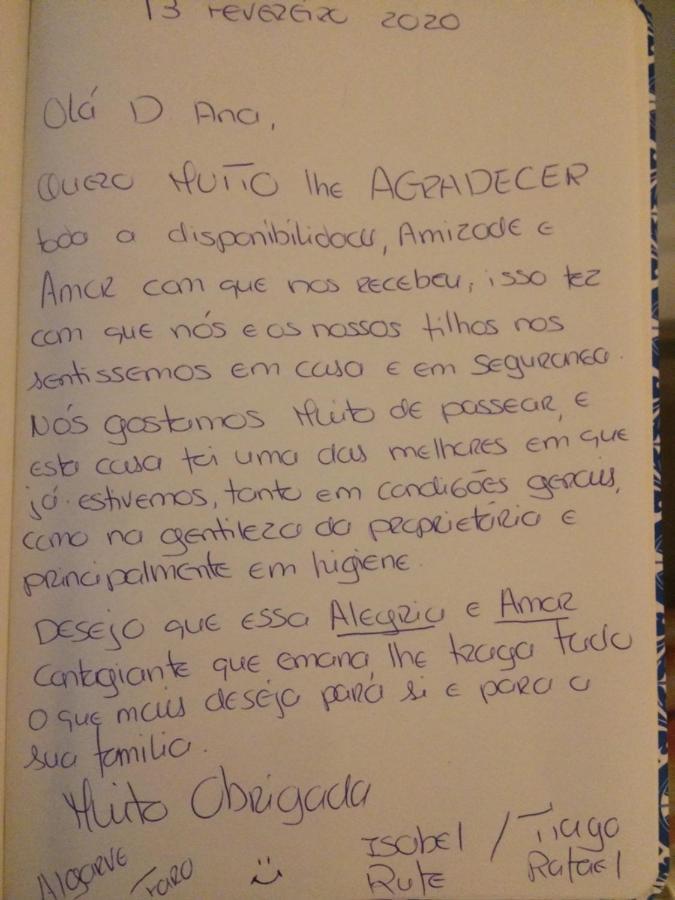 13 FEVEREIRO 2020
Olá D Ana,
QUERO MUITO lhe AGRADECER
toda a disponibilidade, Amizade e
Amor com que nos recebeu, isso fez
com que nós e os nossos filhos nos
sentissemos em casa e em segurança.
Nós gostamos Muito de passear, e
esta casa foi uma das melhores em que
já estivemos, tanto em condições gerais,
como na gentileza da proprietária e
principalmente em higiene.
Desejo que essa Alegria e Amor
contagiante que emana lhe traga tudo
o que mais deseja para si e para a
sua familia.
Muito Obrigada
Algarve Faro :) Isabel / Tiago
Rute Rafael